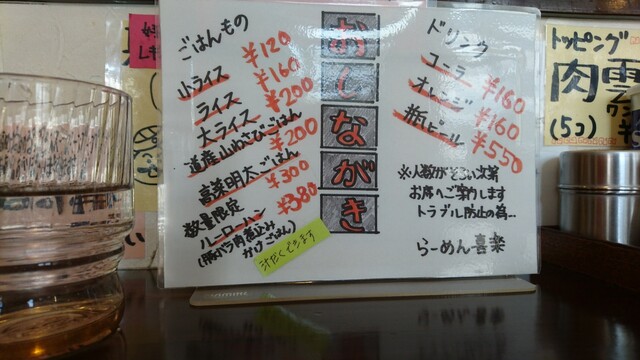 おしながき
ごはんもの
小ライス ¥120
ライス ¥160
大ライス ¥200
道産山わさびごはん ¥200
高菜明太ごはん ¥300
数量限定
ルーローハン ¥380
(豚バラ肉煮込み
かけごはん)
汁だくできます
ドリンク
コーラ ¥160
オレンジ ¥160
瓶ビール ¥550
※人数がそろい次第
お席へご案内します
トラブル防止の為…
らーめん喜楽
トッピング
肉
(5コ)
雲